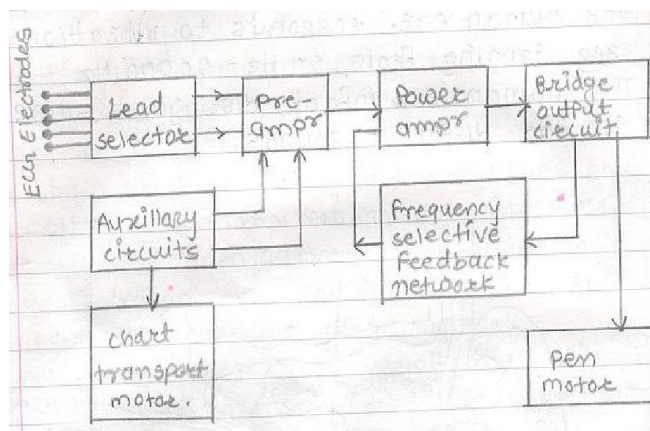 ECG Electrodes
Lead
selector
Pre-
ampr
Power
ampr
Bridge
output
circuit
Auxillary
circuits
Frequency
selective
Feedback
network
chart
transport
motor.
Pen
motor